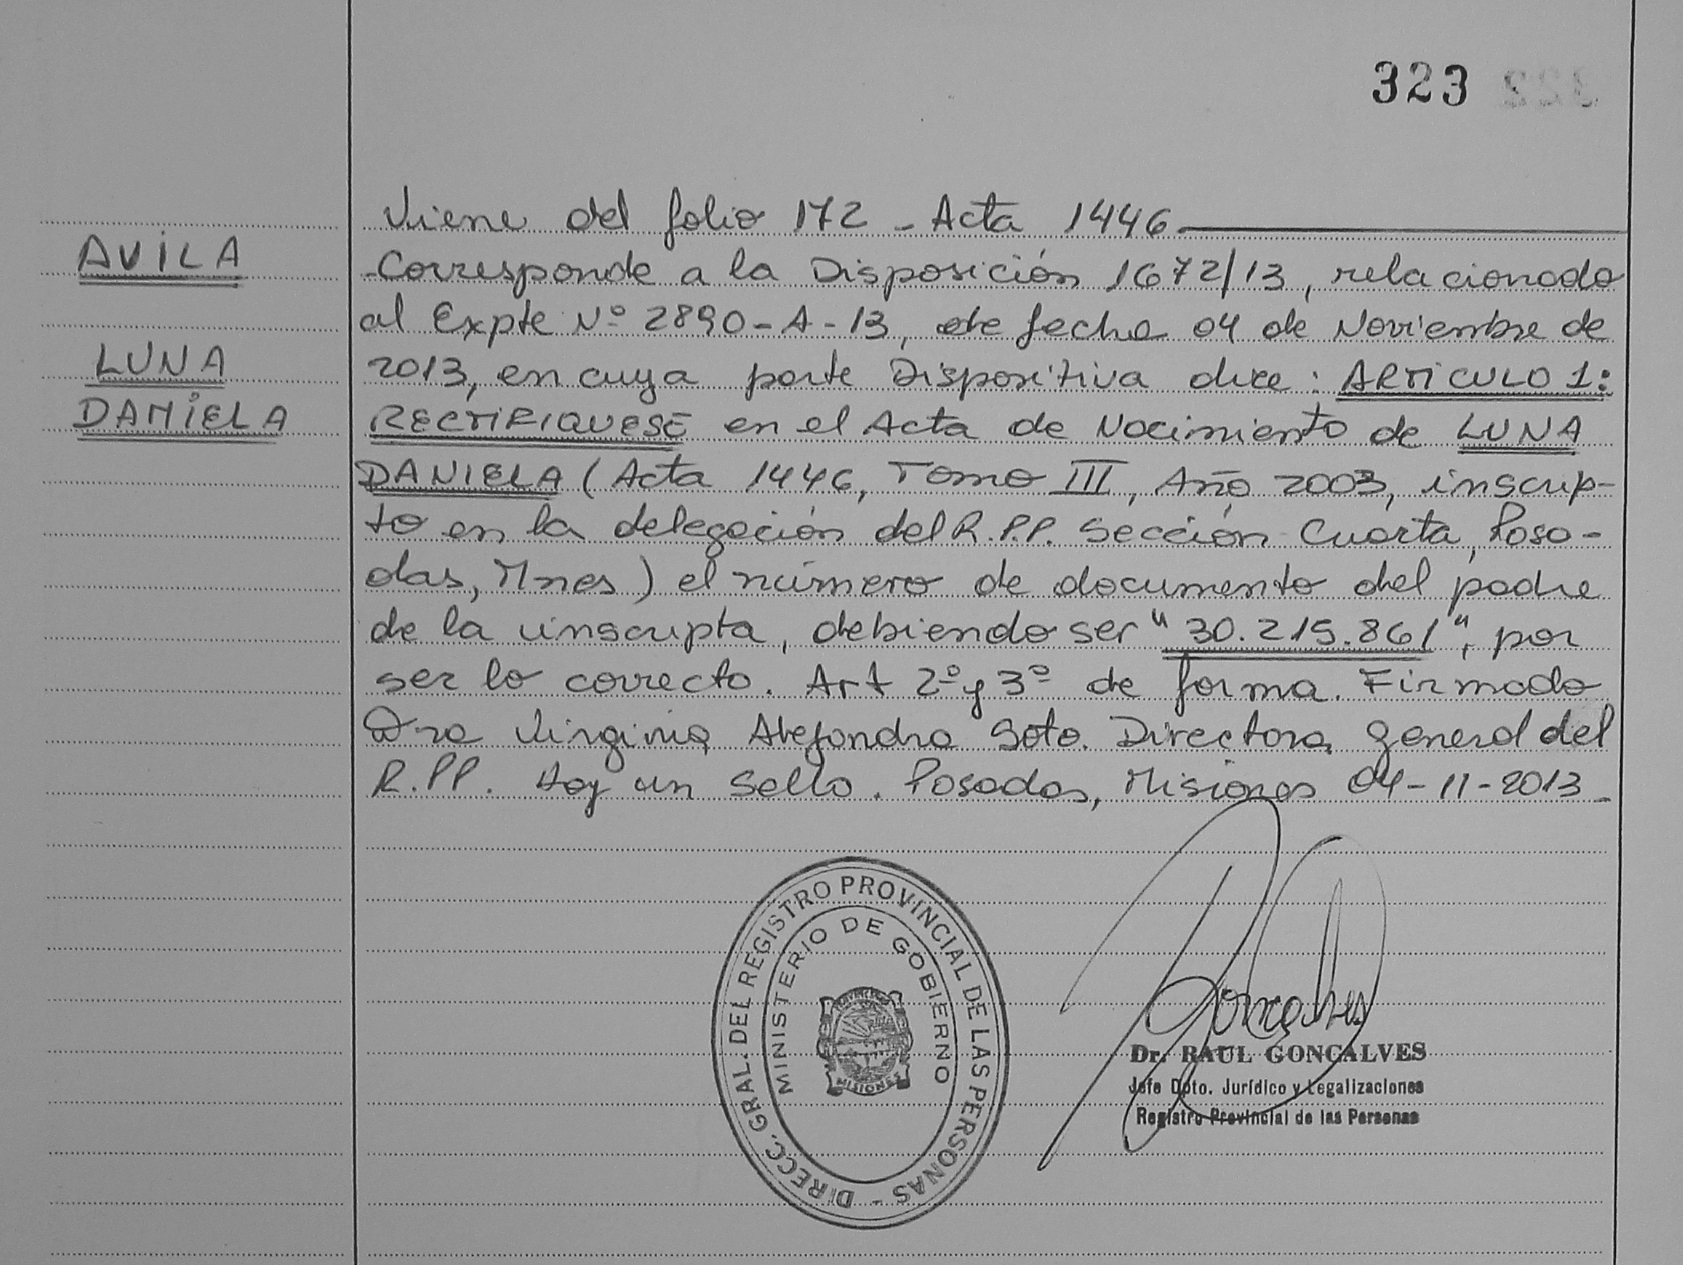 323
322
AVILA
LUNA
DANIELA
Viene del folio 172 - Acta 1446
Corresponde a la Disposición 1672/13, relacionado
al Expte Nº 2890-A-13, de fecha 04 de Noviembre de
2013, en cuya parte Dispositiva dice: ARTICULO 1:
RECTIFIQUESE en el Acta de Nacimiento de LUNA
DANIELA (Acta 1446, Tomo III, Año 2003, inscrip-
to en la delegación del R.P.P. Sección Cuarta, Posa-
das, Mnes) el número de documento del padre
de la inscripta, debiendo ser "30.215.861", por
ser lo correcto. Art 2º y 3º de forma. Firmado
Dra Virginia Alejandra Soto. Directora General del
R.P.P. Hay un Sello. Posadas, Misiones 04-11-2013-
DIRECC. GRAL. DEL REGISTRO PROVINCIAL DE LAS PERSONAS -
MINISTERIO DE GOBIERNO
MISIONES
Goncalves
Dr. RAUL GONCALVES
Jefe Dpto. Jurídico y Legalizaciones
Registro Provincial de las Personas